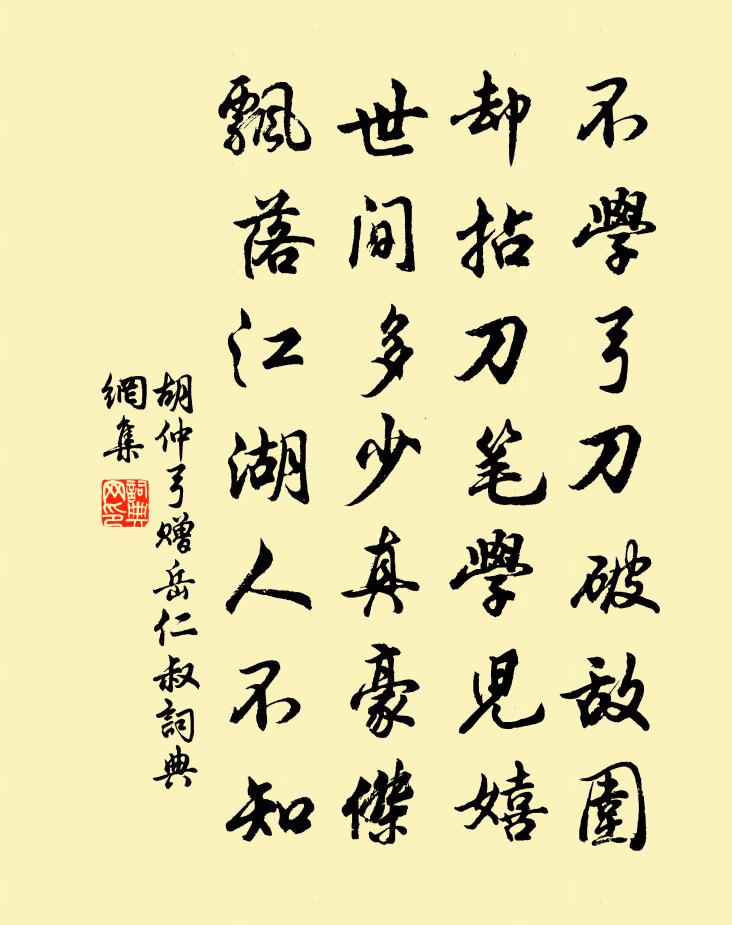 不學弓刀破敌圍
却拈刀笔學児嬉
世间多少真豪傑
飄落江湖人不知
胡仲弓赠岳仁叔詞典
網集
詞典
网印